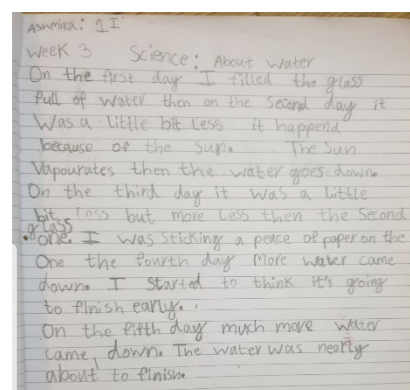 Ashmira: 1I
Week 3 Science: About water
On the first day I filled the glass
full of water then on the Second day it
Was a little bit less it happend
because of the sun. The Sun
Vapourates then the water goes down.
On the third day it was a little
bit less but more less then the Second
glass
one. I was sticking a peace of paper on the
One the fourth day More water came
down. I started to think it's going
to finish early.
On the fifth day much more water
came, down. The water was nearly
about to finish.